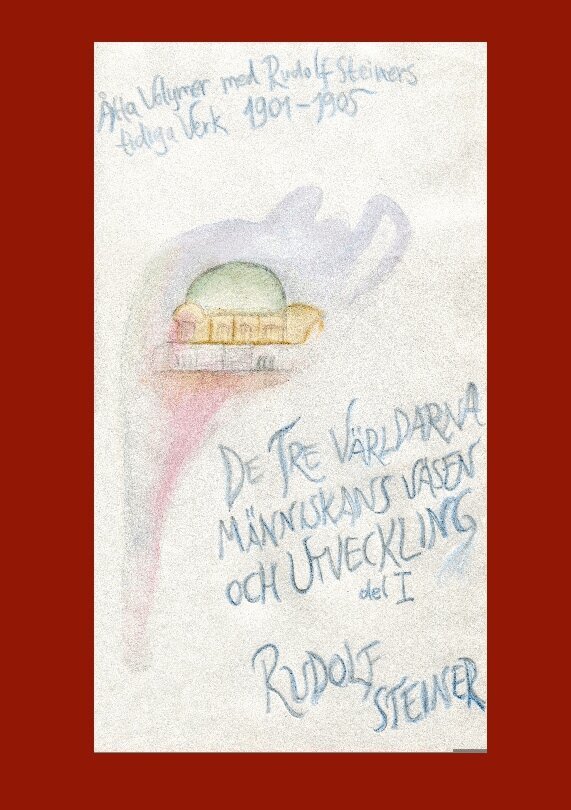 Åtta Volymer med Rudolf Steiners
tidiga Verk 1901-1905
DE TRE VÄRLDARNA
MÄNNISKANS VÄSEN
OCH UTVECKLING
del I
RUDOLF
STEINER